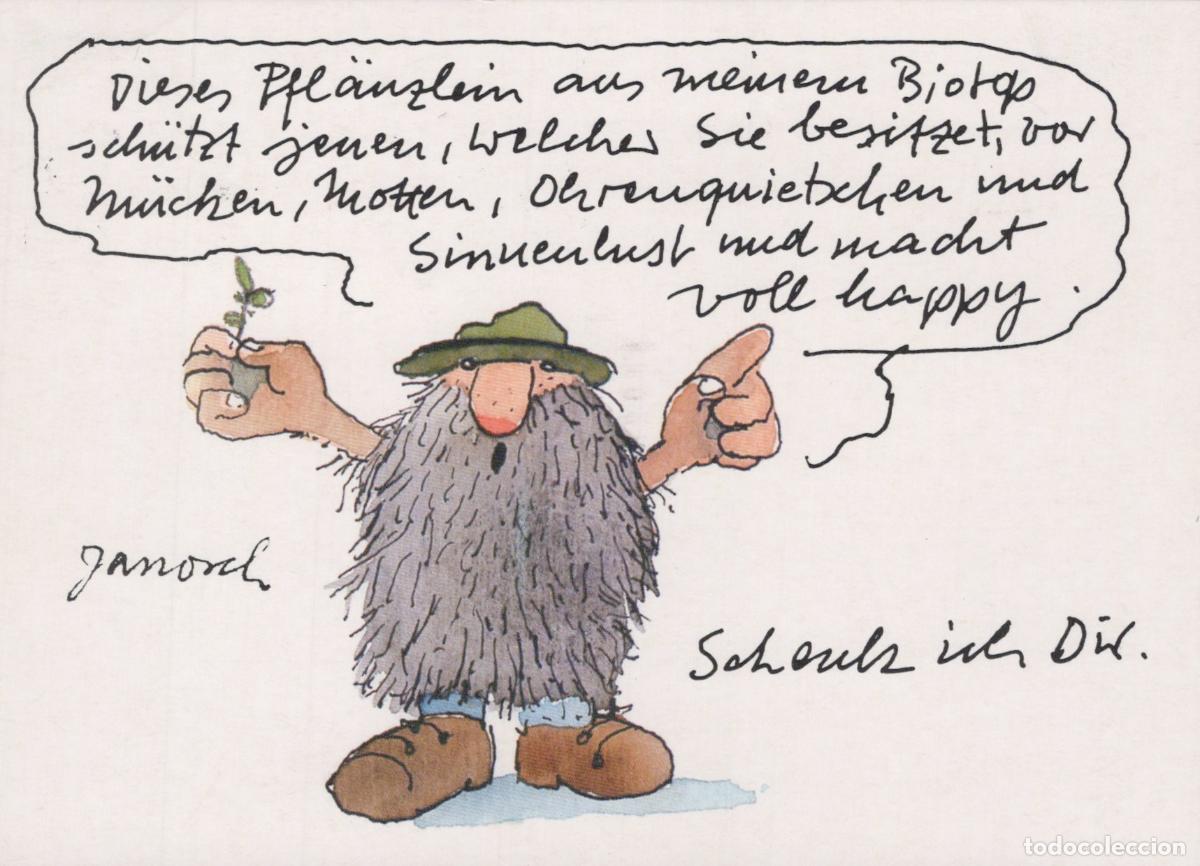 Dieses Pflänzlein aus meinem Biotop
schützt jenen, welcher Sie besitzet, vor
Mücken, Motten, Ohrenquietschen und
Sinnenlust und macht
voll happy.
Janosch
Schenk ich Dir.
todocoleccion